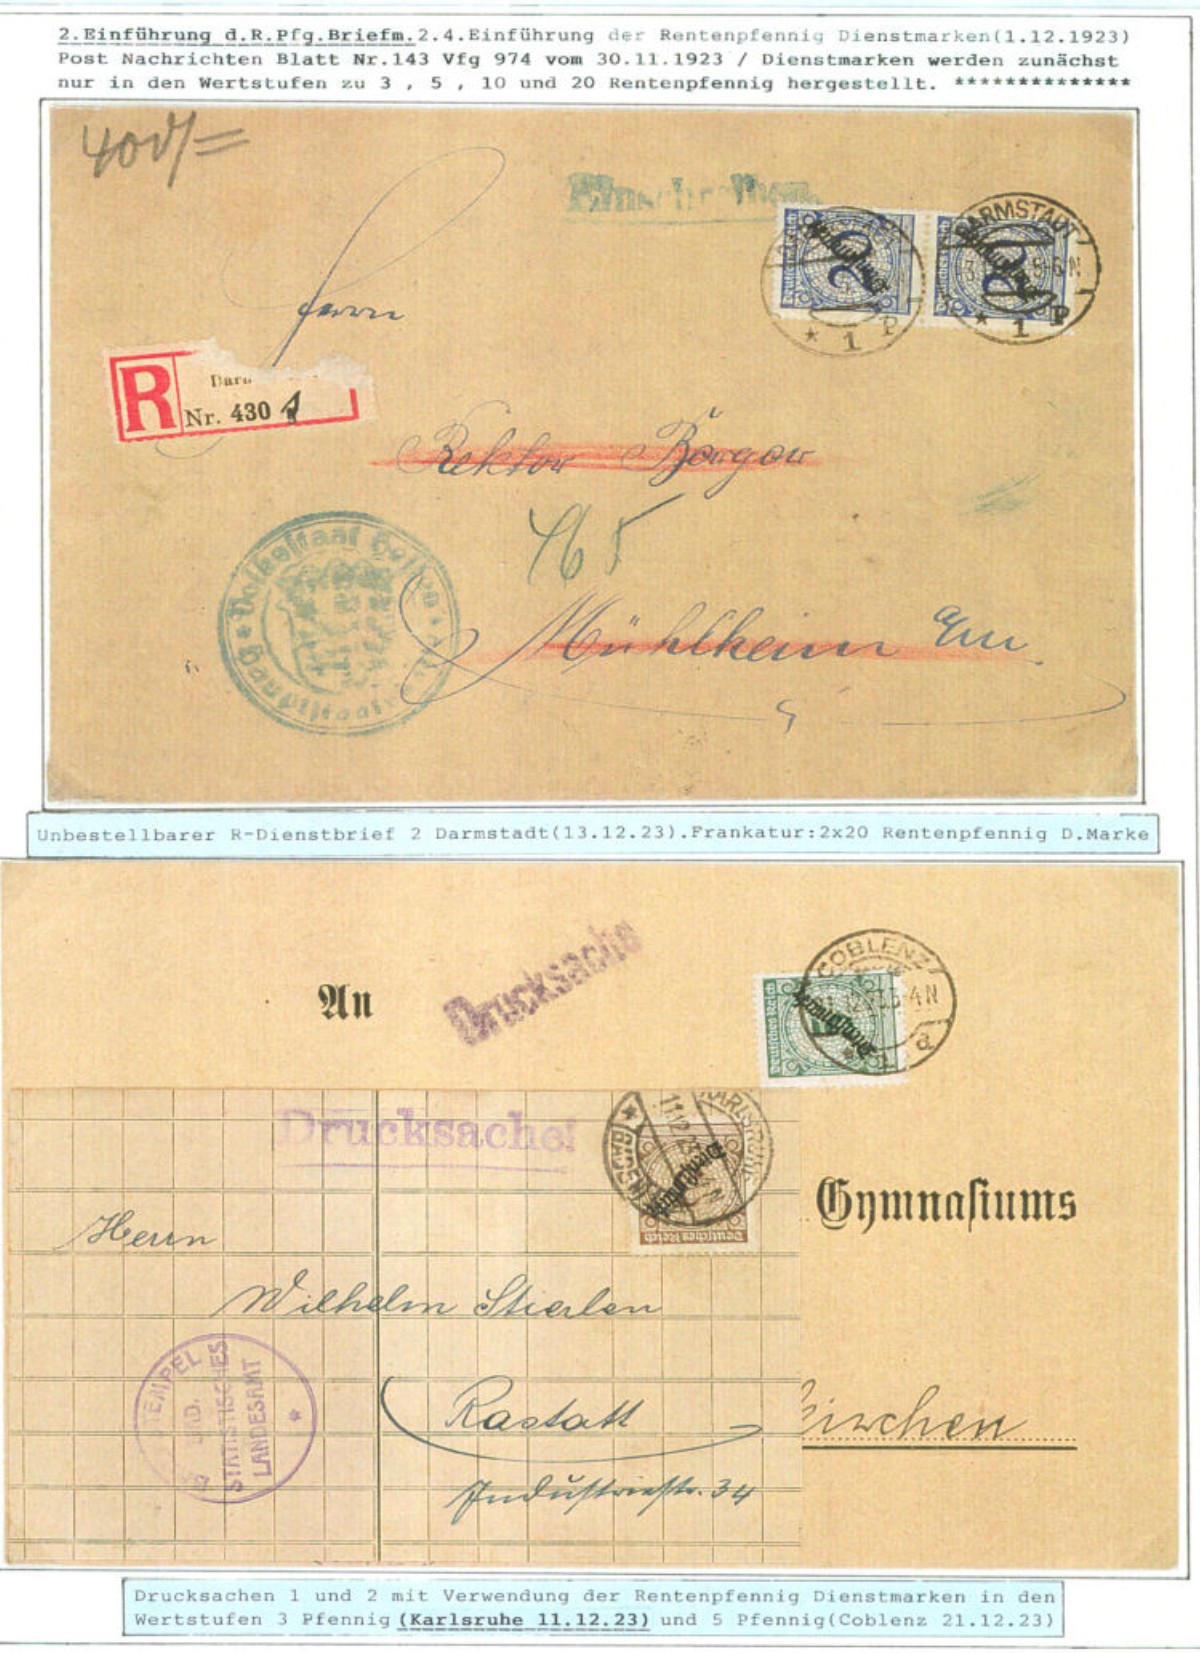 2.Einführung d.R.Pfg.Briefm.2.4.Einführung der Rentenpfennig Dienstmarken(1.12.1923)
Post Nachrichten Blatt Nr.143 Vfg 974 vom 30.11.1923 / Dienstmarken werden zunächst
nur in den Wertstufen zu 3 , 5 , 10 und 20 Rentenpfennig hergestellt. **************
Einschreiben
DARMSTADT
5-6 N
* 1 P
* 1 P
Herrn
R
Nr. 430
Rektor Börgow
Mühlheim
Volksstaat Hessen
Unbestellbarer R-Dienstbrief 2 Darmstadt(13.12.23).Frankatur:2x20 Rentenpfennig D.Marke
An
Drucksache
COBLENZ
3-4 N
Deutsches Reich
Dienstmarke
a
Drucksache!
KARLSRUHE
11.12.23
Deutsches Reich
Gymnasiums
Herrn
Wilhelm Stierlen
STATISTISCHES
LANDESAMT
Rastatt
kirchen
Industriestr. 34
Drucksachen 1 und 2 mit Verwendung der Rentenpfennig Dienstmarken in den
Wertstufen 3 Pfennig (Karlsruhe 11.12.23) und 5 Pfennig(Coblenz 21.12.23)